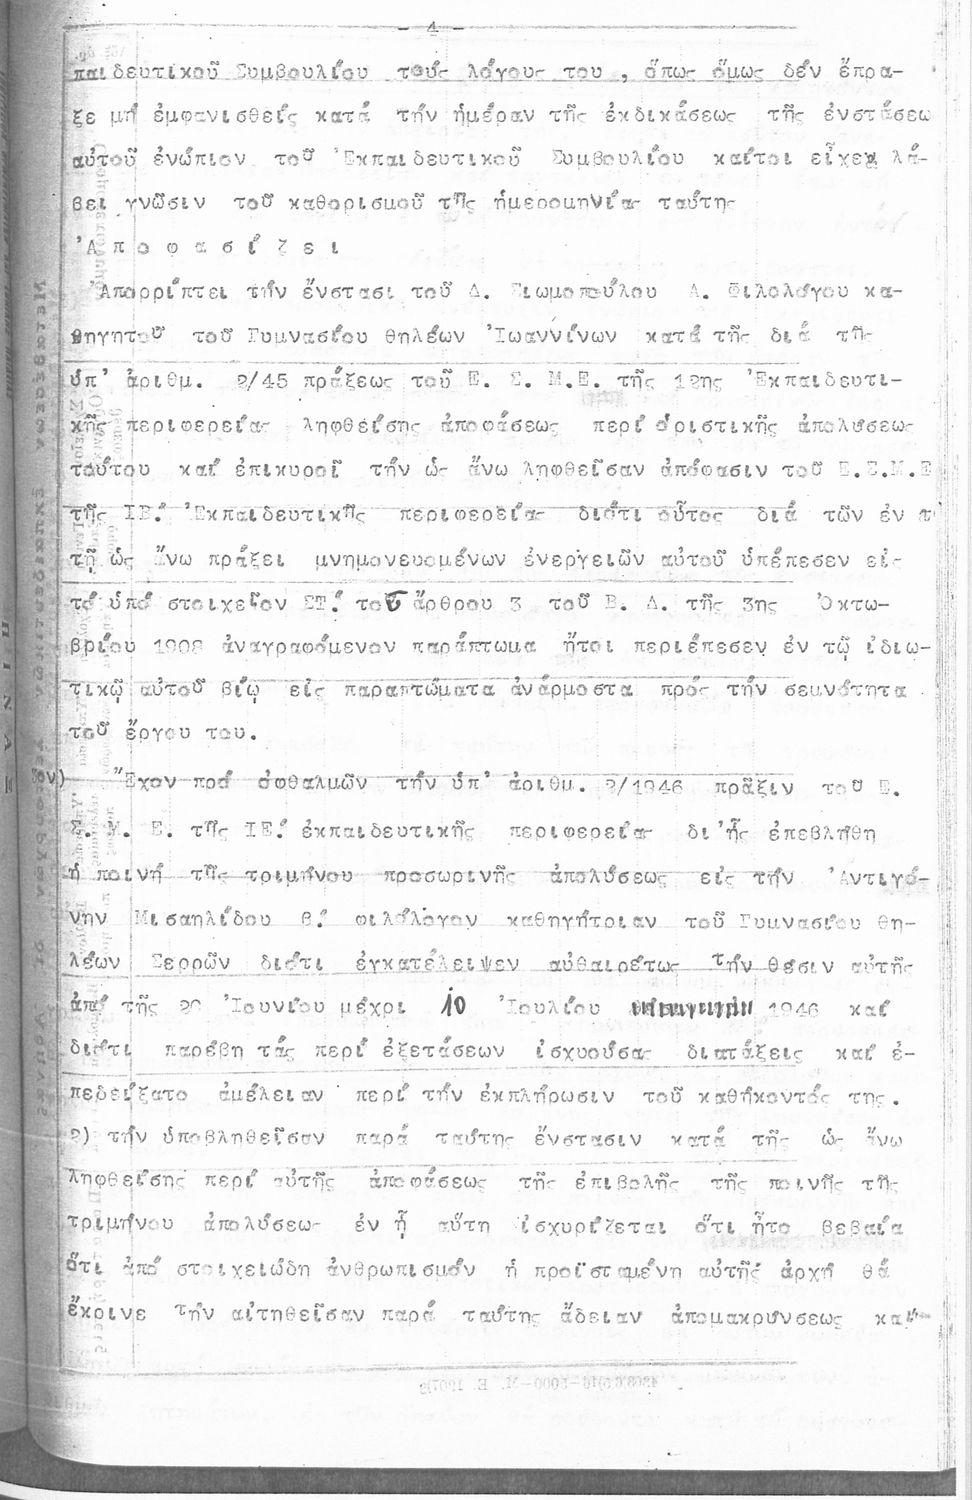 - 4 -
παιδευτικοῦ Συμβουλίου τούς λόγους του , ὅπως ὅμως δέν ἔπρα-
ξε μή ἐμφανισθείς κατά τήν ἡμέραν τῆς ἐκδικάσεως τῆς ἐνστάσεω
αὐτοῦ ἐνώπιον τοῦ Ἐκπαιδευτικοῦ Συμβουλίου καίτοι εἶχεν λά-
βει γνῶσιν τοῦ καθορισμοῦ τῆς ἡμερομηνίας ταύτης
Ἀ π ο φ α σ ί ζ ε ι
Ἀπορρίπτει τήν ἔνστασι τοῦ Δ. Σιωμοπούλου Α. Φιλολόγου κα-
θηγητοῦ τοῦ Γυμνασίου θηλέων Ἰωαννίνων κατά τῆς διά τῆς
ὑπ' ἀριθμ. 2/45 πράξεως τοῦ Ε. Σ. Μ.Ε. τῆς 12ης Ἐκπαιδευτι-
κῆς περιφερείας ληφθείσης ἀποφάσεως περί ὁριστικῆς ἀπολύσεως
τούτου καί ἐπικυροῖ τήν ὡς ἄνω ληφθεῖσαν ἀπόφασιν τοῦ Ε.Σ.Μ.Ε
τῆς ΙΒ! Ἐκπαιδευτικῆς περιφερείας διότι οὗτος διά τῶν ἐν
τῇ ὡς ἄνω πράξει μνημονευομένων ἐνεργειῶν αὐτοῦ ὑπέπεσεν εἰς
τό ὑπό στοιχεῖον ΣΤ! τοῦ ἄρθρου 3 τοῦ Β. Δ. τῆς 3ης Ὀκτω-
βρίου 1908 ἀναγραφόμενον παράπτωμα ἤτοι περιέπεσεν ἐν τῷ ἰδιω-
τικῷ αὐτοῦ βίῳ εἰς παραπτώματα ἀνάρμοστα πρός τήν σεμνότητα
τοῦ ἔργου του.
Ἔχον πρό ὀφθαλμῶν τήν ὑπ' ἀριθμ. 2/1946 πρᾶξιν τοῦ Ε.
Σ. Μ. Ε. τῆς ΙΕ! ἐκπαιδευτικῆς περιφερείας δι' ἧς ἐπεβλήθη
ἡ ποινή τῆς τριμήνου προσωρινῆς ἀπολύσεως εἰς τήν Ἀντιγό-
νην Μισαηλίδου β! φιλόλογον καθηγήτριαν τοῦ Γυμνασίου θη-
λέων Σερρῶν διότι ἐγκατέλειψεν αὐθαιρέτως τήν θέσιν αὐτῆς
ἀπό τῆς 20 Ἰουνίου μέχρι 10 Ἰουλίου 1946 καί
διότι παρέβη τάς περί ἐξετάσεων ἰσχυούσας διατάξεις καί ἐ-
πεδείξατο ἀμέλειαν περί τήν ἐκπλήρωσιν τοῦ καθήκοντός της.
2) τήν ὑποβληθεῖσαν παρά ταύτης ἔνστασιν κατά τῆς ὡς ἄνω
ληφθείσης περί αὐτῆς ἀποφάσεως τῆς ἐπιβολῆς τῆς ποινῆς τῆς
τριμήνου ἀπολύσεως ἐν ᾗ αὕτη ἰσχυρίζεται ὅτι ἦτο βεβαία
ὅτι ἀπό στοιχειώδη ἀνθρωπισμόν ἡ προϊσταμένη αὐτῆς ἀρχή θά
ἔκρινε τήν αἰτηθεῖσαν παρά ταύτης ἄδειαν ἀπομακρύνσεως